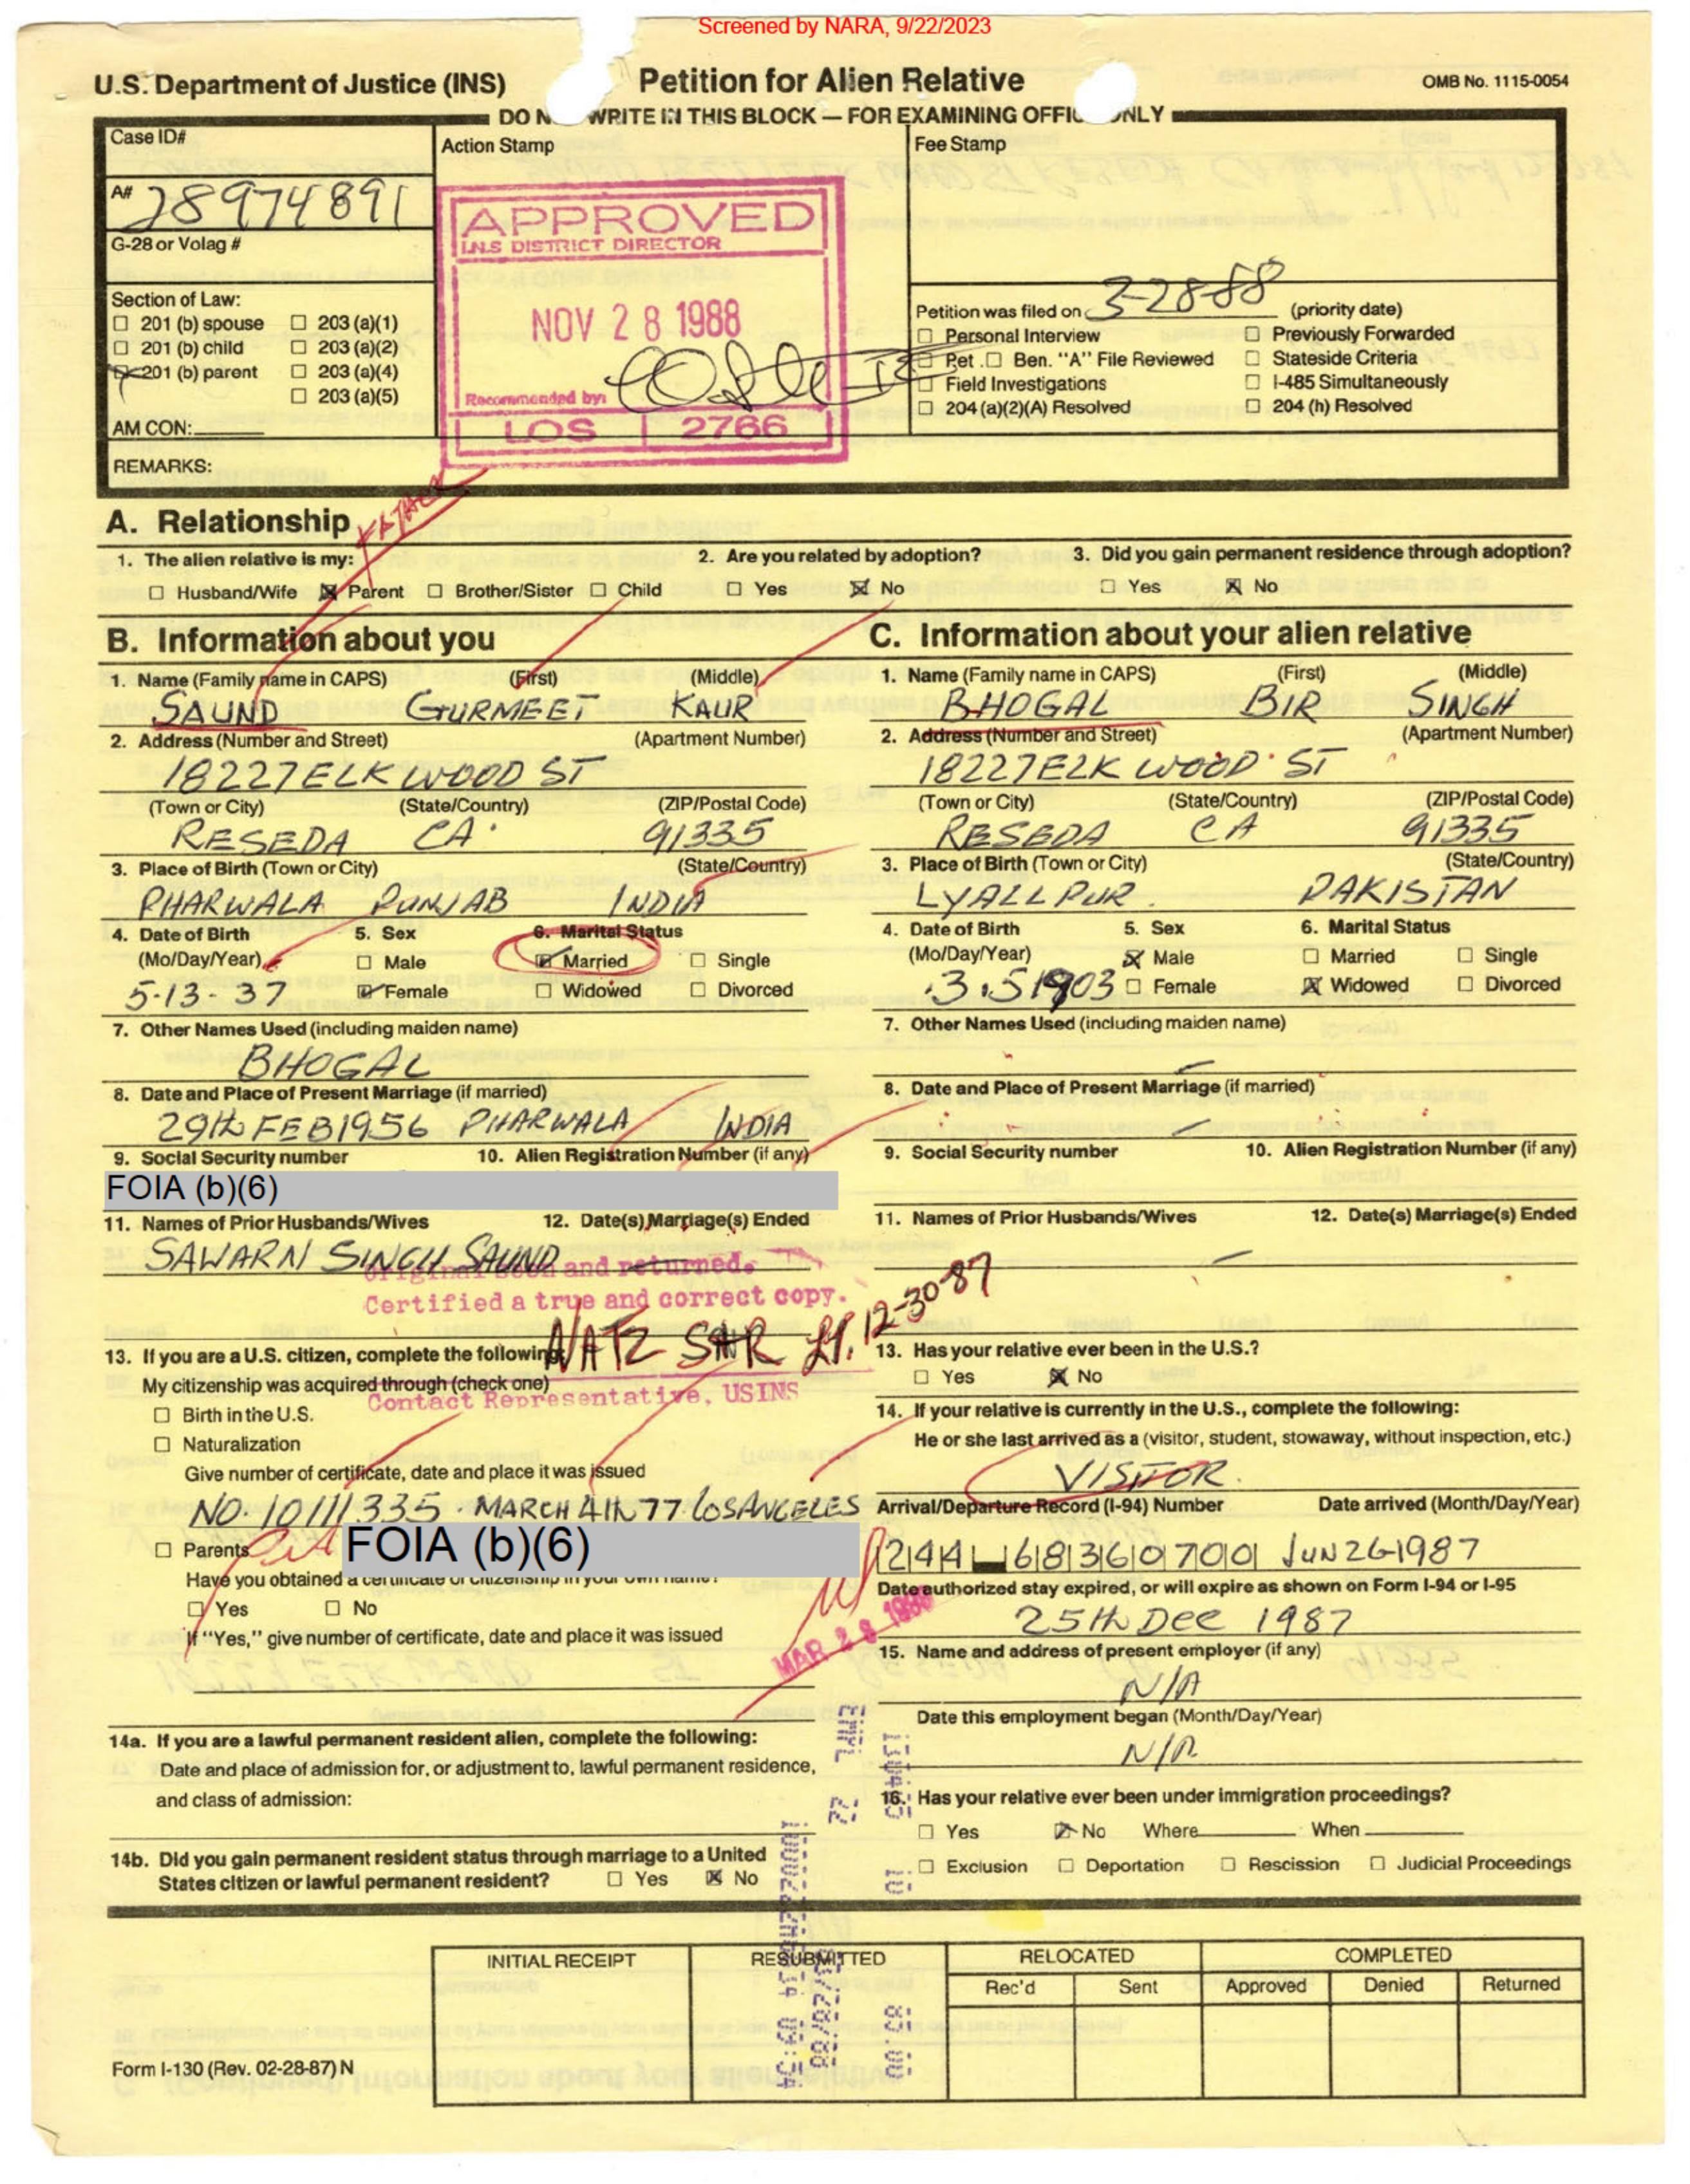 Screened by NARA, 9/22/2023
U.S. Department of Justice (INS) Petition for Alien Relative OMB No. 1115-0054
DO N WRITE IN THIS BLOCK — FOR EXAMINING OFFIC ONLY
Case ID#
Action Stamp
Fee Stamp
A# 28974891
G-28 or Volag #
APPROVED
I.N.S DISTRICT DIRECTOR
NOV 28 1988
Recommended by:
LOS 2766
Section of Law:
☐ 201 (b) spouse ☐ 203 (a)(1)
☐ 201 (b) child ☐ 203 (a)(2)
☒ 201 (b) parent ☐ 203 (a)(4)
☐ 203 (a)(5)
AM CON:
REMARKS:
Petition was filed on 3-28-88 (priority date)
☐ Personal Interview ☐ Previously Forwarded
☐ Pet. ☐ Ben. "A" File Reviewed ☐ Stateside Criteria
☐ Field Investigations ☐ I-485 Simultaneously
☐ 204 (a)(2)(A) Resolved ☐ 204 (h) Resolved
A. Relationship FATHER
1. The alien relative is my: 2. Are you related by adoption? 3. Did you gain permanent residence through adoption?
☐ Husband/Wife ☒ Parent ☐ Brother/Sister ☐ Child ☐ Yes ☒ No ☐ Yes ☒ No
B. Information about you
1. Name (Family name in CAPS) (First) (Middle)
SAUND GURMEET KAUR
2. Address (Number and Street) (Apartment Number)
18227 ELK WOOD ST
(Town or City) (State/Country) (ZIP/Postal Code)
RESEDA CA 91335
3. Place of Birth (Town or City) (State/Country)
PHARWALA PUNJAB INDIA
4. Date of Birth 5. Sex 6. Marital Status
(Mo/Day/Year) ☐ Male ☒ Married ☐ Single
5-13-37 ☒ Female ☐ Widowed ☐ Divorced
7. Other Names Used (including maiden name)
BHOGAL
8. Date and Place of Present Marriage (if married)
29th FEB 1956 PHARWALA INDIA
9. Social Security number 10. Alien Registration Number (if any)
FOIA (b)(6)
11. Names of Prior Husbands/Wives 12. Date(s) Marriage(s) Ended
SAWARN SINGH SAUND
Original seen and returned.
Certified a true and correct copy.
NATZ 12-30-87
Contact Representative, USINS
13. If you are a U.S. citizen, complete the following:
My citizenship was acquired through (check one)
☐ Birth in the U.S.
☐ Naturalization
Give number of certificate, date and place it was issued
NO. 10111335 . MARCH 4th 77 LOS ANGELES
☐ Parents
FOIA (b)(6)
Have you obtained a certificate of citizenship in your own name?
☐ Yes ☐ No
If "Yes," give number of certificate, date and place it was issued
14a. If you are a lawful permanent resident alien, complete the following:
Date and place of admission for, or adjustment to, lawful permanent residence,
and class of admission:
14b. Did you gain permanent resident status through marriage to a United
States citizen or lawful permanent resident? ☐ Yes ☒ No
C. Information about your alien relative
1. Name (Family name in CAPS) (First) (Middle)
BHOGAL BIR SINGH
2. Address (Number and Street) (Apartment Number)
18227 ELK WOOD ST
(Town or City) (State/Country) (ZIP/Postal Code)
RESEDA CA 91335
3. Place of Birth (Town or City) (State/Country)
LYALLPUR PAKISTAN
4. Date of Birth 5. Sex 6. Marital Status
(Mo/Day/Year) ☒ Male ☐ Married ☐ Single
3.5 1903 ☐ Female ☒ Widowed ☐ Divorced
7. Other Names Used (including maiden name)
—
8. Date and Place of Present Marriage (if married)
—
9. Social Security number 10. Alien Registration Number (if any)
11. Names of Prior Husbands/Wives 12. Date(s) Marriage(s) Ended
—
13. Has your relative ever been in the U.S.?
☐ Yes ☒ No
14. If your relative is currently in the U.S., complete the following:
He or she last arrived as a (visitor, student, stowaway, without inspection, etc.)
VISITOR
Arrival/Departure Record (I-94) Number Date arrived (Month/Day/Year)
244 68360700 JUN 26-1987
Date authorized stay expired, or will expire as shown on Form I-94 or I-95
25th DEC 1987
MAR 28 1988
15. Name and address of present employer (if any)
N/A
Date this employment began (Month/Day/Year)
N/A
16. Has your relative ever been under immigration proceedings?
☐ Yes ☒ No Where When
☐ Exclusion ☐ Deportation ☐ Rescission ☐ Judicial Proceedings
INITIAL RECEIPT RESUBMITTED RELOCATED COMPLETED
Rec'd Sent Approved Denied Returned
Form I-130 (Rev. 02-28-87) N